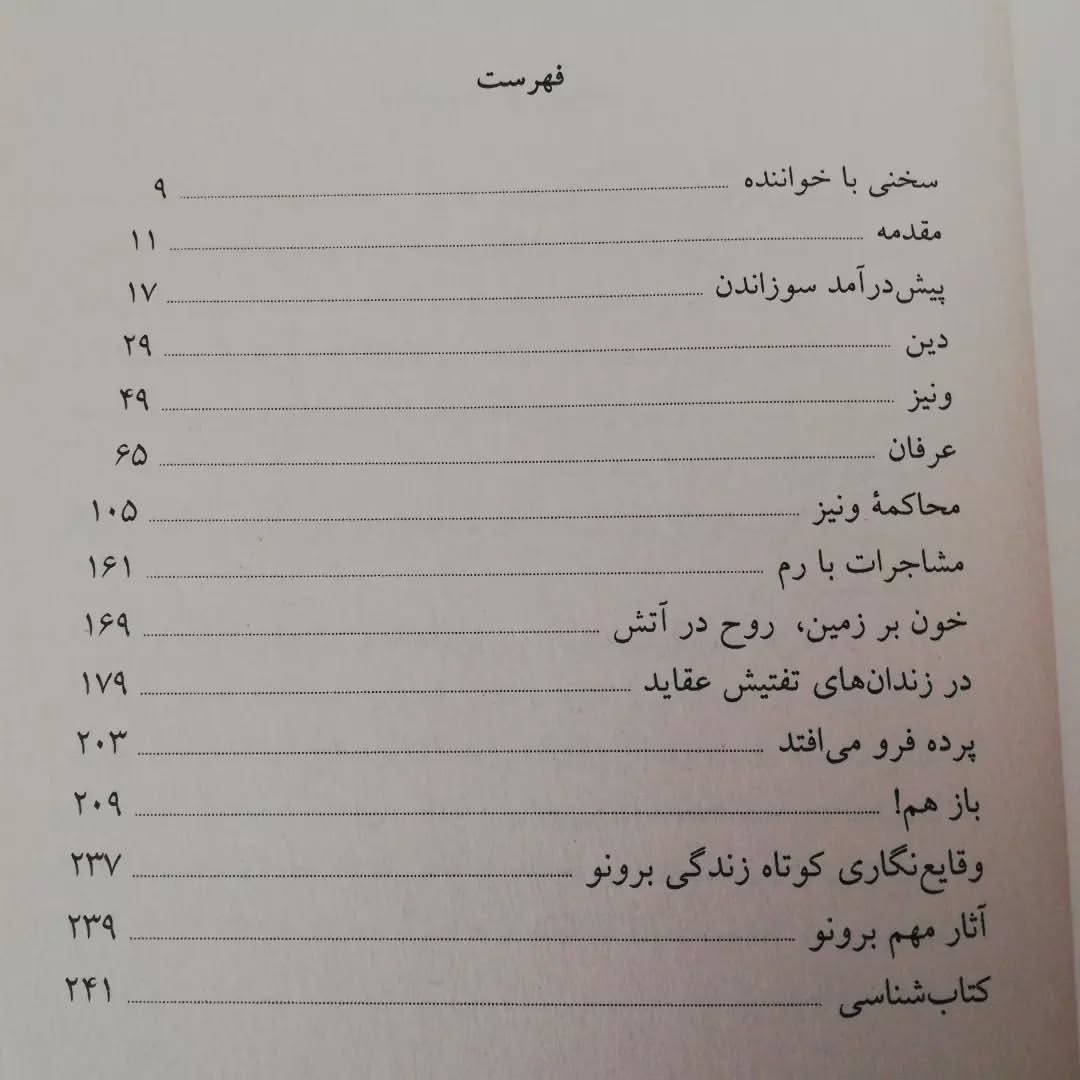 فهرست
سخنی با خواننده ........ ۹
مقدمه ........ ۱۱
پیش‌درآمد سوزاندن ........ ۱۷
دین ........ ۲۹
ونیز ........ ۴۹
عرفان ........ ۶۵
محاکمهٔ ونیز ........ ۱۰۵
مشاجرات با رم ........ ۱۶۱
خون بر زمین، روح در آتش ........ ۱۶۹
در زندان‌های تفتیش عقاید ........ ۱۷۹
پرده فرو می‌افتد ........ ۲۰۳
باز هم! ........ ۲۰۹
وقایع‌نگاری کوتاه زندگی برونو ........ ۲۳۷
آثار مهم برونو ........ ۲۳۹
کتاب‌شناسی ........ ۲۴۱